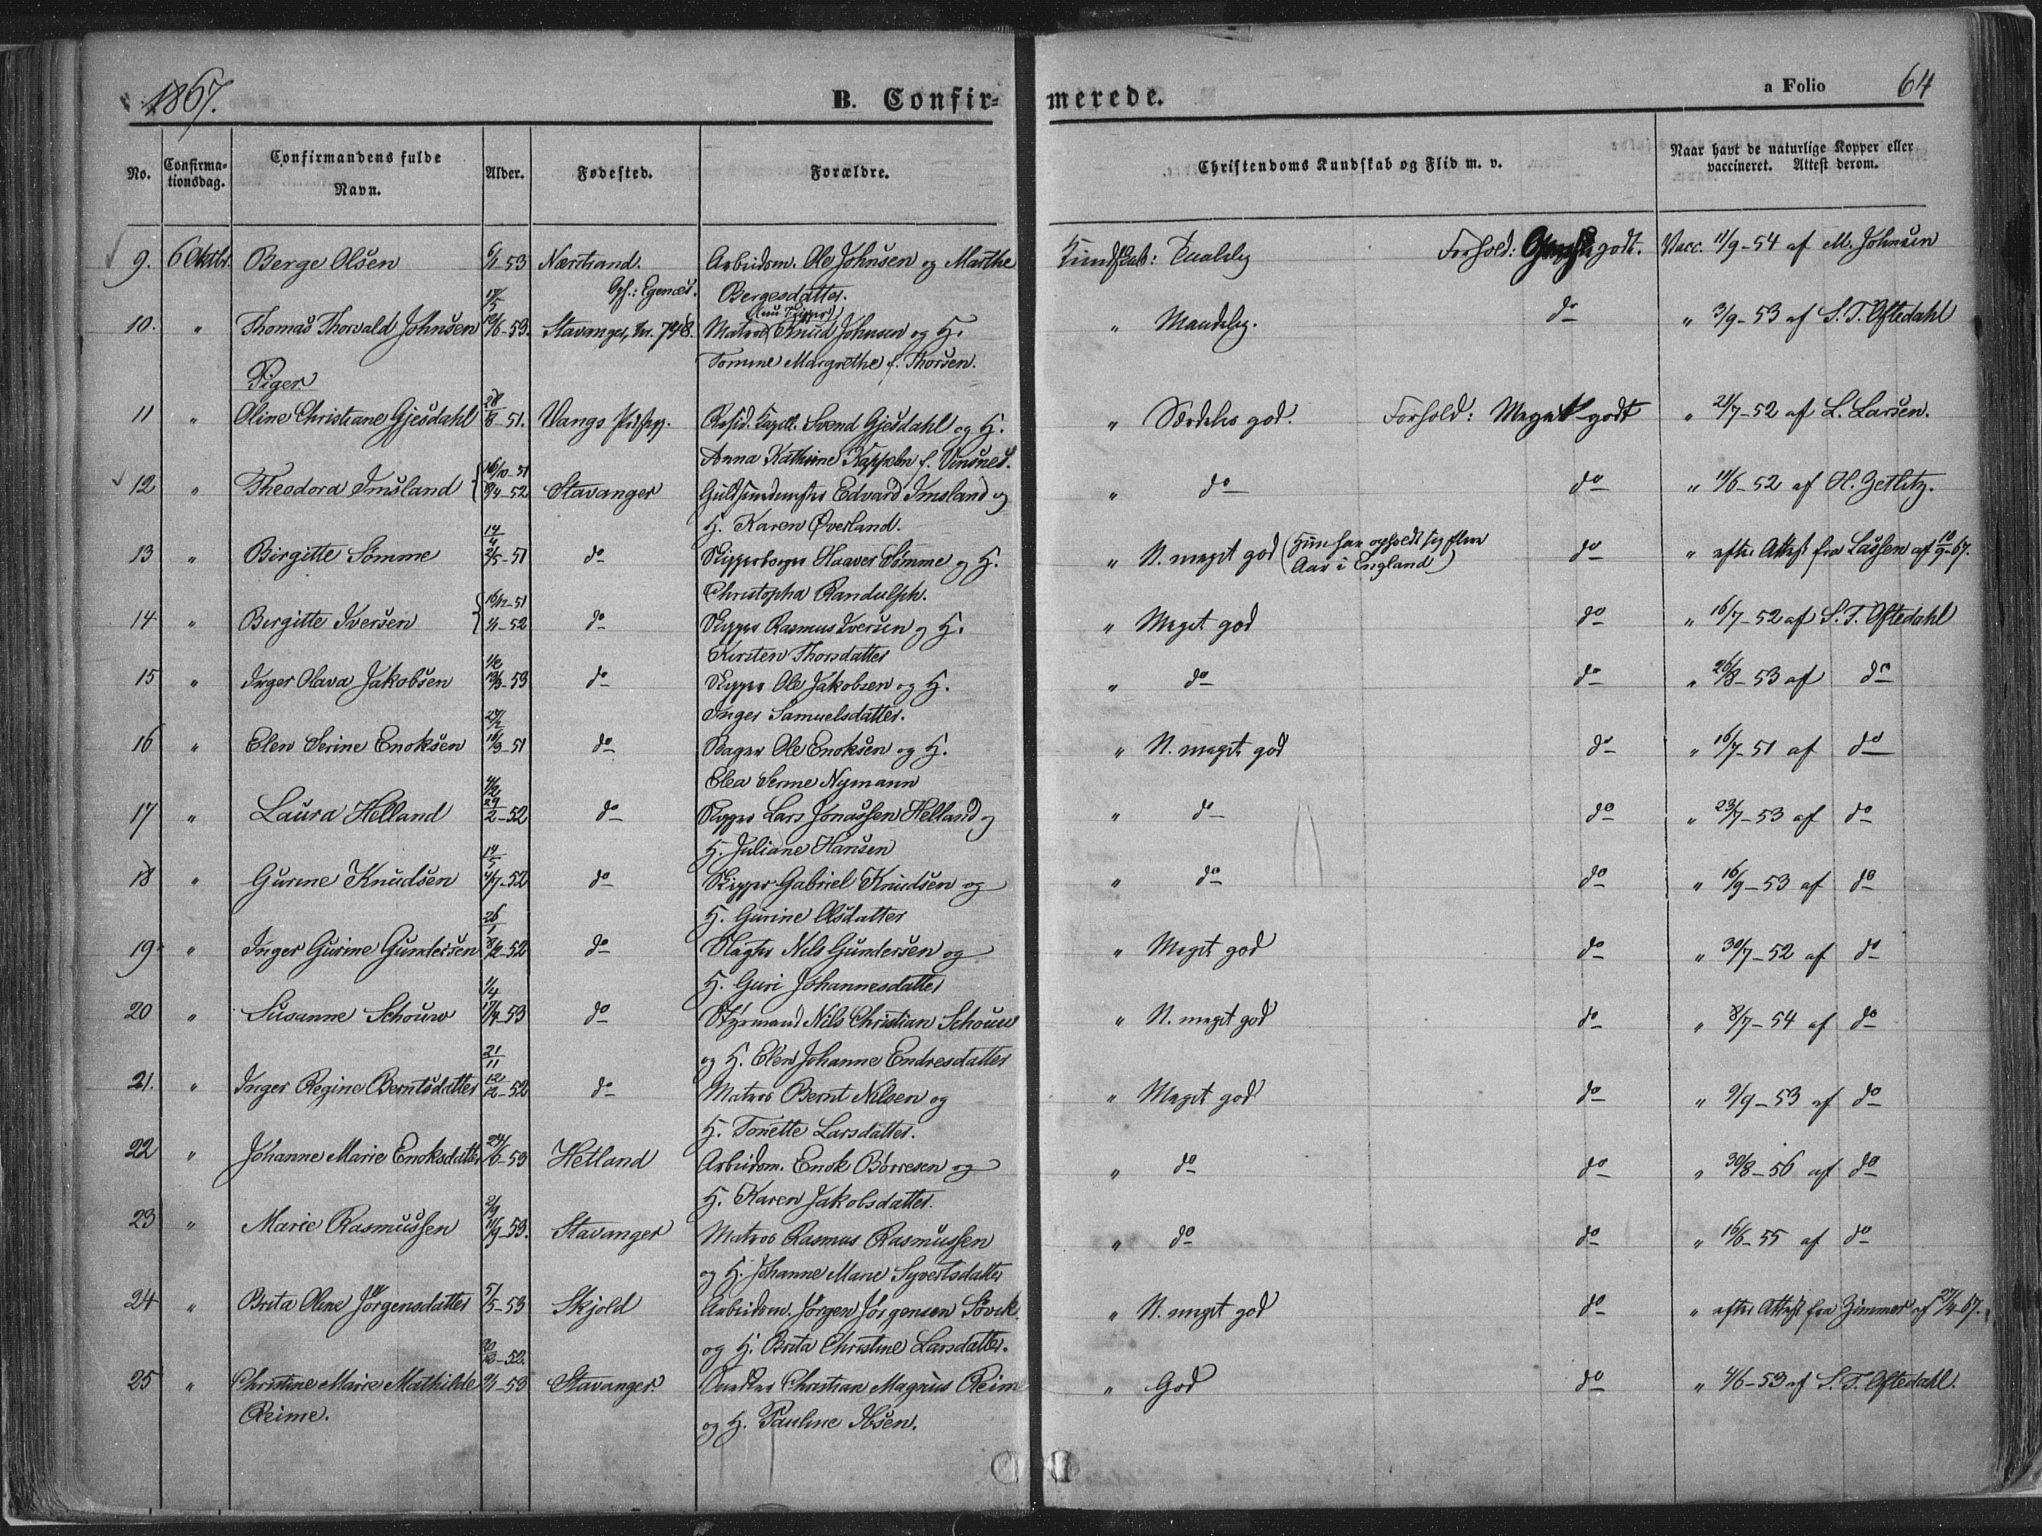 1867.
B. Confir-
merede.
a Folio 64
No.
Confirma-
tionsdag.
Confirmandens fulde
Navn.
Alder.
Fødested.
Forældre.
Christendoms Kundskab og Flid m. v.
Naar havt de naturlige Kopper eller
vaccineret. Attest derom.
9. 6 Oktbr. Berge Olsen 6/1-53 Nærstrand. Arbeidsm. Ole Johnsen og Marthe Kundskab: Taalelig Forhold: godt. Vacc. 11/9-54 af M. Johnsen
Bergesdatter.
10. " Thomas Thorvald Johnsen -53. Stavanger, nr. 748. Matros Knud Johnsen og H. " Maadelig. do " 3/9-53 af S. T. Oftedahl
Tomine Margrethe f. Thorsen.
Piger
11 " Oline Christiane Gjesdahl 28/8-51. Vangs Præstgj. Resid. Capell. Svend Gjesdahl og H. " Særdeles god. Forhold: Meget godt " 21/7-52 af L. Larsen.
Anna Kathrine Kappelen f. Vinsnes.
12 " Theodora Imsland 16/10-51 9/4-52 Stavanger Guldsmedmester Edvard Imsland og " do do " 11/6-52 af H. Zetlitz.
H. Karen Øverland.
13 " Birgitte Sømme 14/4 2/5-51 do Skipperborger Haaver Sømme og H. " N. meget god (Hun har opholdt sig flere do " efter Attest fra Lassen af 10/9-67.
Aar i England)
Christopha Randulph.
14 " Birgitte Iversen 16/12-51 1/1-52 do Skipper Rasmus Iversen og H. " Meget god do " 16/7-52 af S. T. Oftedahl
Kirsten Thorsdatter
15 " Inger Olava Jakobsen 1/2 13/3-53 do Skipper Ole Jakobsen og H. " do do " 26/8-53 af do
Inger Samuelsdatter.
16 " Elen Serine Enoksen 16/3-51 do Bager Ole Enoksen og H. " N. meget god do " 16/7-51 af do
Elea Serine Nymann
17 " Laura Helland 29/2-52 do Skipper Lars Jonassen Helland og " do do " 23/7-53 af do
H. Juliane Hansen
18 " Gurine Knudsen 14/5 -52 do Skipper Gabriel Knudsen og " do do " 16/9-53 af do
H. Gurine Olsdatter
19. " Inger Gurine Gundersen 26/1 8/2-52 do Slagter Nils Gundersen og " Meget god do " 30/7-52 af do
H. Guri Johannesdatter
20 " Susanne Schouw 1/4 17/4-53 do Styrmand Nils Christian Schouw " N. meget god do " 8/7-54 af do
og H. Elen Johanne Endresdatter
21. " Inger Regine Berntsdatter 21/11 12/12-52 do Matros Bernt Nilsen og " Meget god do " 9/9-53 af do
H. Tonette Larsdatter.
22 " Johanne Marie Enoksdatter 24/6-53 Hetland Arbeidsm. Enok Børresen og " do do " 30/8-56 af do
H. Karen Jakobsdatter.
23 " Marie Rasmussen 2/9 11/9-53. Stavanger Matros Rasmus Rasmussen " do do " 16/6-55 af do
og H. Johanne Marie Syvertsdatter
24 " Brita Oline Jørgensdatter 5/5-53 Skjold Arbeidsm. Jørgen Jørgensen Søvik " N. meget god do " efter Attest fra Zimmer af 27/4-67.
og H. Brita Christine Larsdatter.
25 " Christine Marie Mathilde 30/12-52. 9/1-53 Stavanger. Christian Magnus Reime " God do " 4/6-53 af S. T. Oftedahl.
Reime. og H. Pauline Ibsen.